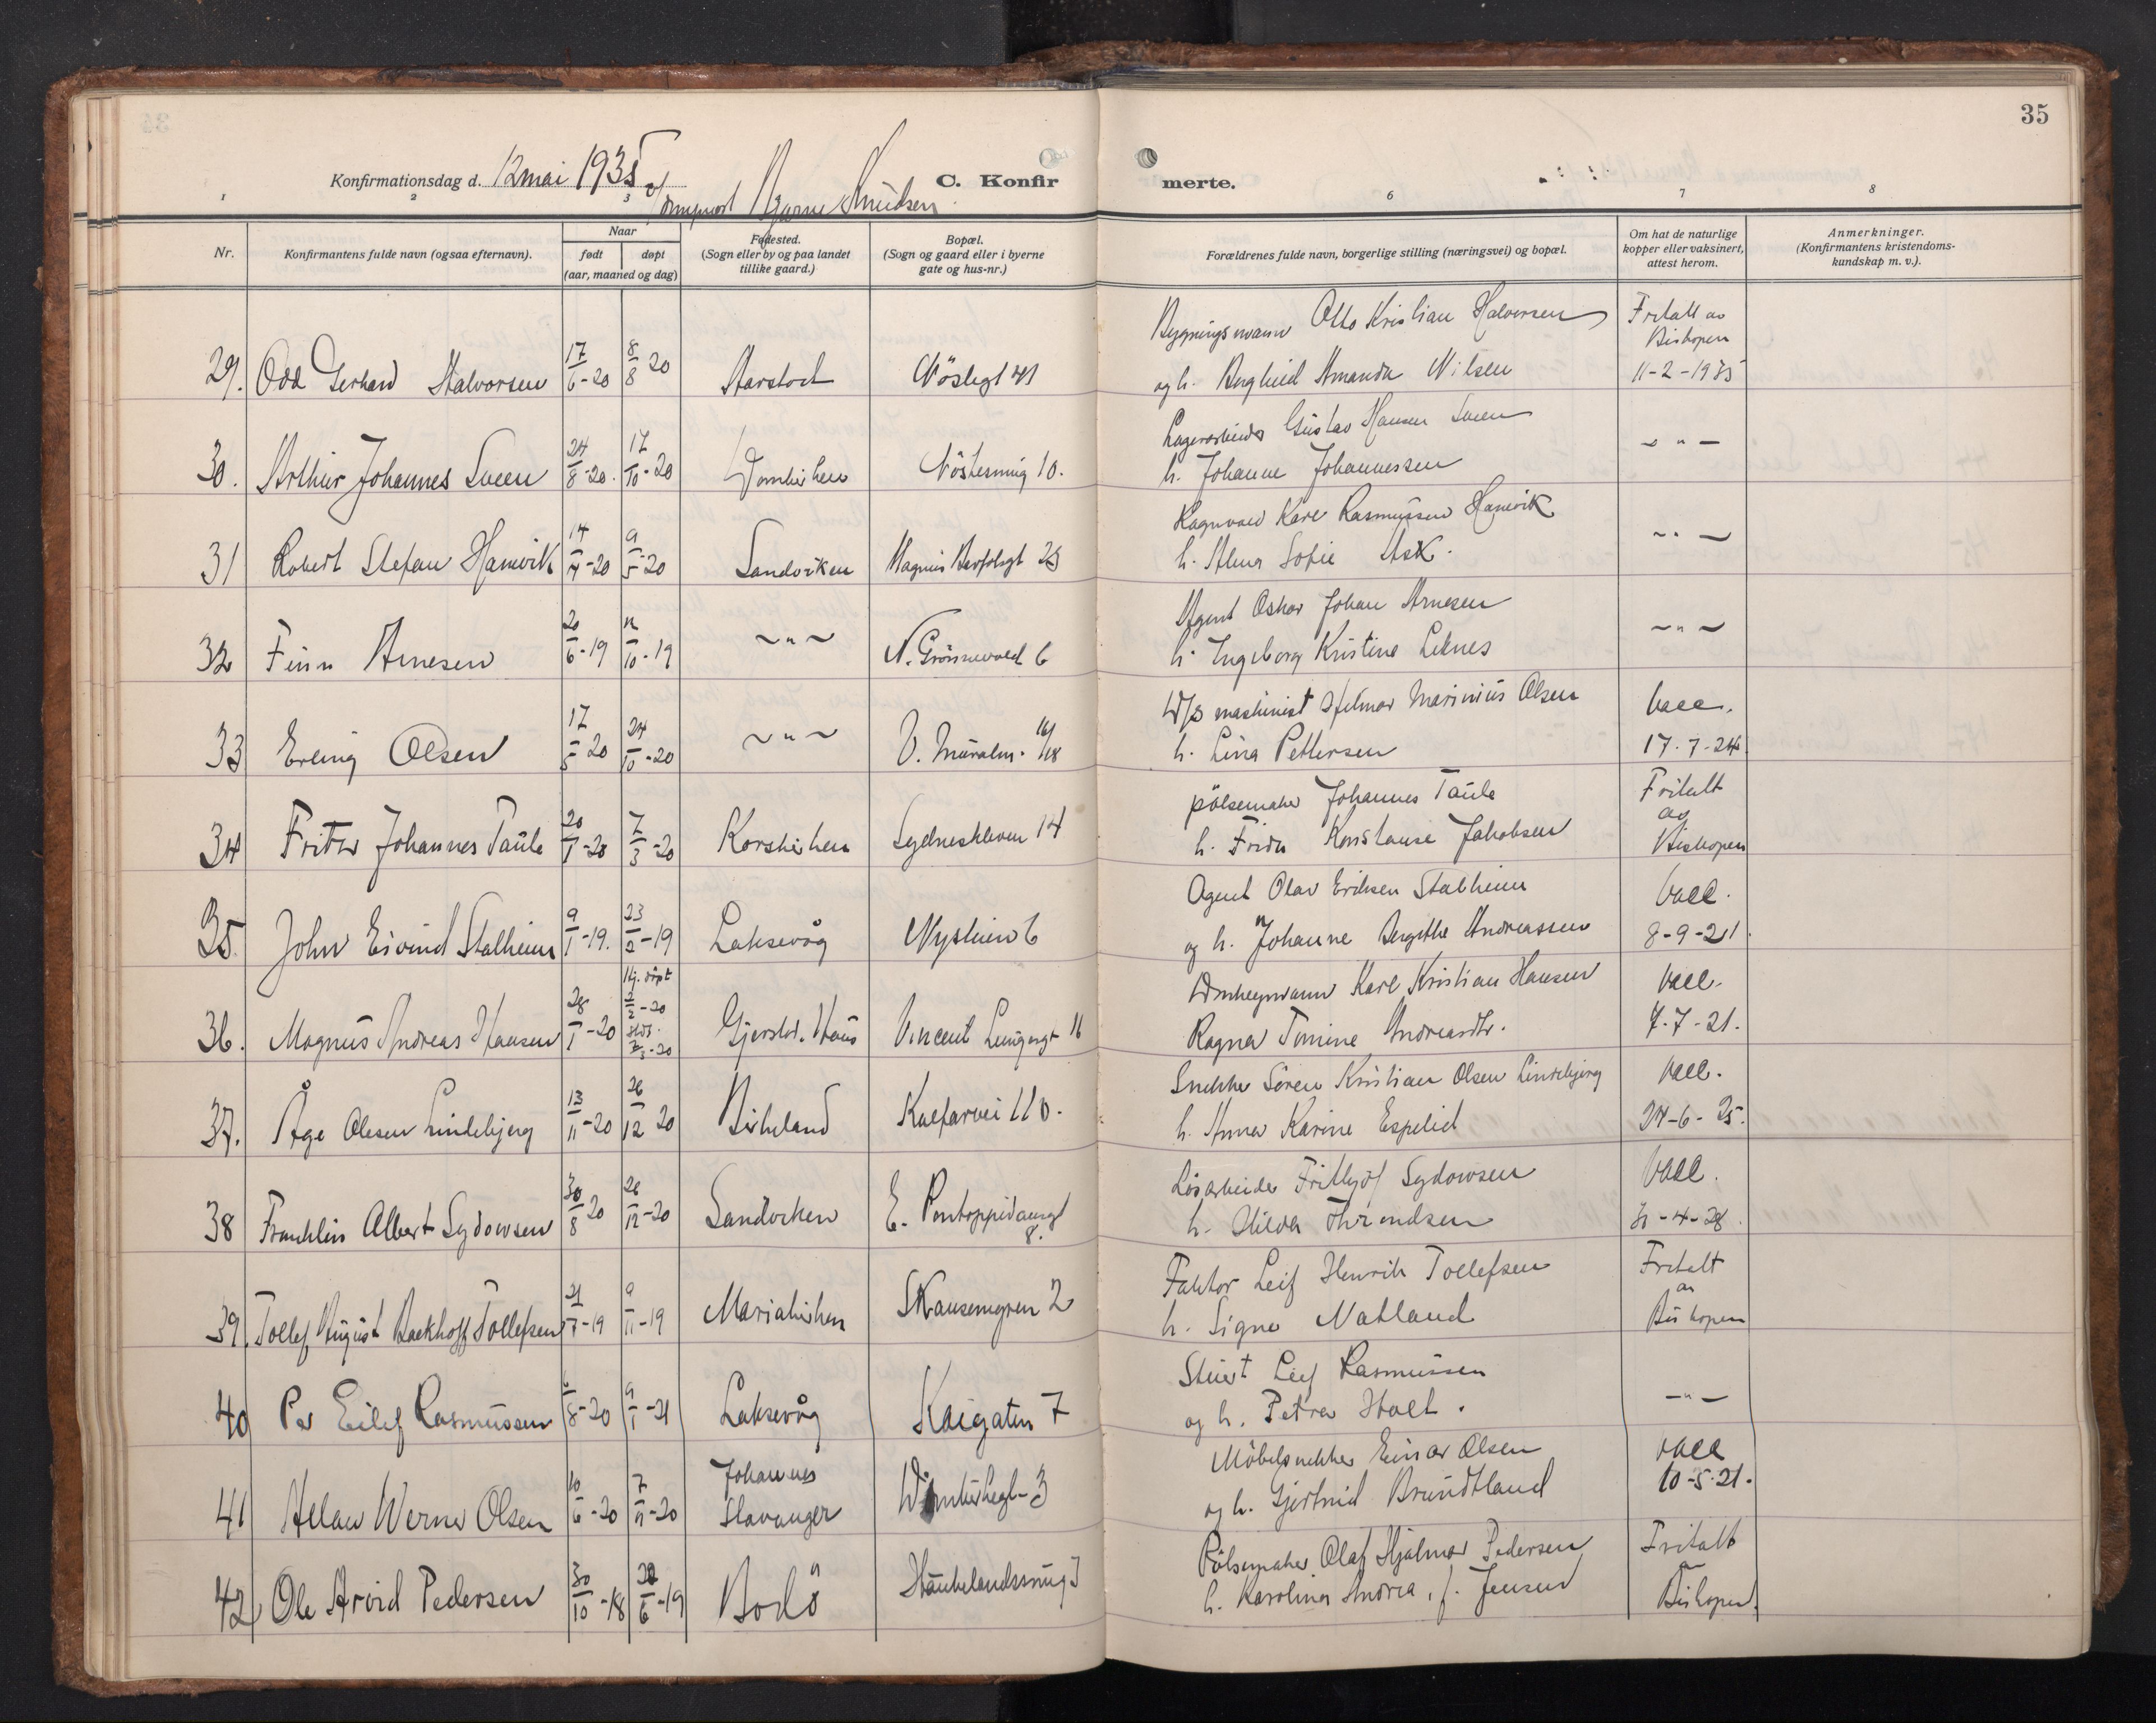 35
Konfirmationsdag d. 12 mai 1935
v/ Bjarne Knudsen
C. Konfirmerte.
1 2 3 6 7 8
Nr.
Konfirmantens fulde navn (ogsaa efternavn).
Naar
født
døpt
(aar, maaned og dag)
Fødested.
(Sogn eller by og paa landet tillike gaard.)
Bopæl.
(Sogn og gaard eller i byerne gate og hus-nr.)
Forældrenes fulde navn, borgerlige stilling (næringsvei) og bopæl.
Om hat de naturlige kopper eller vaksinert, attest herom.
Anmerkninger.
(Konfirmantens kristendoms-kundskap m. v.).
29. Odd Gerhard Halvorsen 17/6-20 8/8 20 Aarstad Nöstegt 41
Bygningsmann Otto Kristian Halvorsen
og h. Borghild Amanda Nilsen
Fritatt av Biskopen 11-2-1935
30. Arthur Johannes Sveen 24/8-20. 17/10-20 Domkirken Nöstesmug 10.
Lagerarbeider Gustav Hansen Sveen
h. Johanne Johannessen
- " -
31 Robert Stefan Hamvik 14/4-20 9/5-20 Sandviken Magnus Barfotsgt 23
Ragnvald Karl Rasmussen Hamvik
h. Alma Sofie Ask.
- " -
32 Finn Arnesen 20/6-19 12/10-19 - " - N. Grönnevold 6
Agent Oskar Johan Arnesen
h. Ingeborg Kristine Leknes
- " -
33 Erling Olsen 17/5-20 24/10-20 - " - V. Muralm. 16/18
D/S maskinist Hjelmar Marinius Olsen
h. Lina Pettersen
Vacc. 17-7-24
34 Fritz Johannes Taule 20/1-20 7/3-20 Korskirken Sydneskleven 14
pölsemaker Johannes Taule
h. Frida Konstanse Jakobsen
Fritatt av Biskopen
35 John Eivind Stalheim 9/1-19. 23/2-19 Laksevåg Nystuen 6
Agent Olav Eriksen Stalheim
og h. Johanne Bergithe Andreassen
Vacc. 8-9-21.
36. Magnus Andreas Hansen 28/1-20 Hj. döpt 2/2-20 Gjerstad. Haus Vincent Lungesgt 16
Karl Kristian Hansen
Ragna Tomine Andreasdtr.
Vacc. 7-7-21.
37. Åge Olesen Lindebjerg 13/11-20 26/12 20 Birkeland Kalfarvei 110.
Snekker Sören Kristian Olsen Lindebjerg
h. Anna Karine Espelid
Vacc. 24-6-25.
38 Franklin Albert Sydowsen 30/8 20 26/12-20 Sandviken E. Pontoppidansgt 8.
Løsarbeider Frithjof Sydowsen
h. Hilda Throndsen
Vacc. 31-4-28.
39. Tollef August Backhoff Tollefsen 21/7-19 9/11-19 Mariakirken Skansemyren 2
Faktor Leif Henrik Tollefsen
h. Signe Natland
Fritatt av Biskopen
40 Per Eilef Rasmussen 8-20 9/1-21 Laksevåg Kaigaten 7
Stuert Leif Rasmussen
og h. Petra Holt.
- " -
41 Allan Werner Olsen 10/6-20 7/11-20 Johannes Stavanger 3
Möbelsnekker Einar Olsen
og h. Gjertrud Brundtland
Vacc 10-5-21.
42 Ole Arvid Pedersen 30/10-18 22/6-19 Bodö Haukelandssmug 7
Pölsemaker Olaf Hjalmar Pedersen
h. Karolina Andrea, f. Jensen
Fritatt av Biskopen.